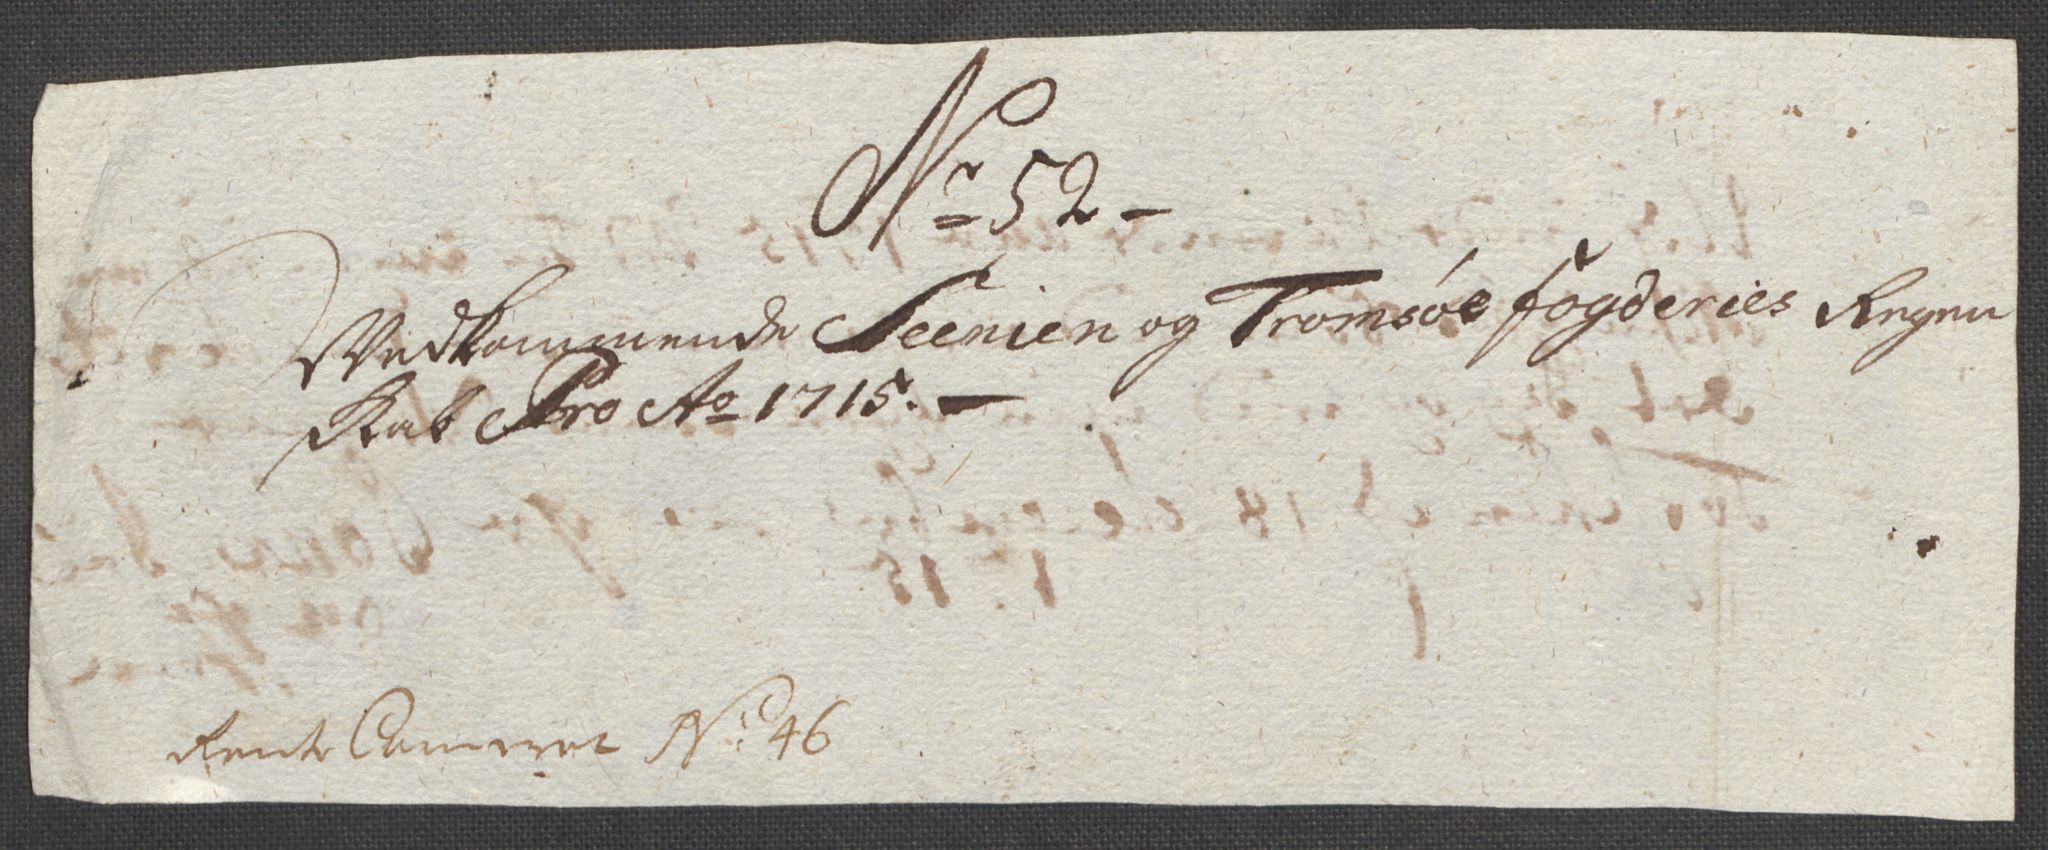 Nr 52 -
Vedkommende Seenien og Tromsöe fogderies Regen
Kab Pro Ao 1715. -
Rente Cammeret No 46